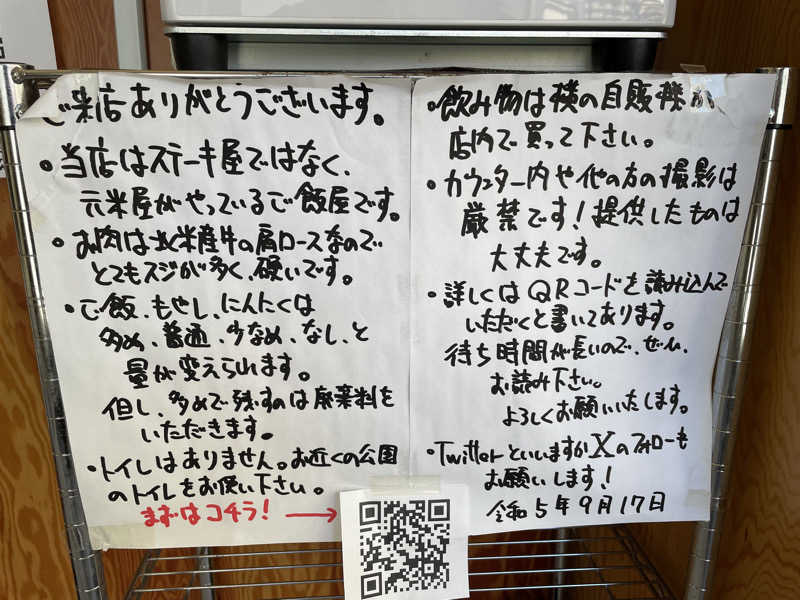 ご来店ありがとうございます。
・当店はステーキ屋ではなく、
元米屋がやっているご飯屋です。
・お肉は北米産牛の肩ロースなので
とてもスジが多く、硬いです。
・ご飯、もやし、にんにくは
多め、普通、少なめ、なし、と
量が変えられます。
但し、多めで残すのは廃棄料を
いただきます。
・トイレはありません。お近くの公園
のトイレをお使い下さい。
まずはコチラ!→
・飲み物は横の自販機か
店内で買って下さい。
・カウンター内や他の方の撮影は
厳禁です!提供したものは
大丈夫です。
・詳しくはQRコードを読み込んで
いただくと書いてあります。
待ち時間が長いので、ぜひ、
お読み下さい。
よろしくお願いいたします。
・TwitterといいますかXのフォローも
お願いします!
令和5年9月17日